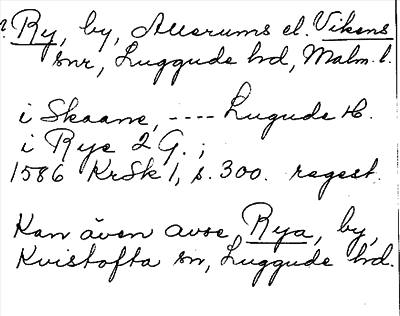 ? Ry, by, Allerums el. Vikens
snr, Luggude hd, Malm. l.
i Skaane, ---- Lugude H.
i Rye 2 G. ;
1586 KrSk 1, s. 300. regest.
Kan även avse Rya, by,
Kvistofta sn, Luggude hd.